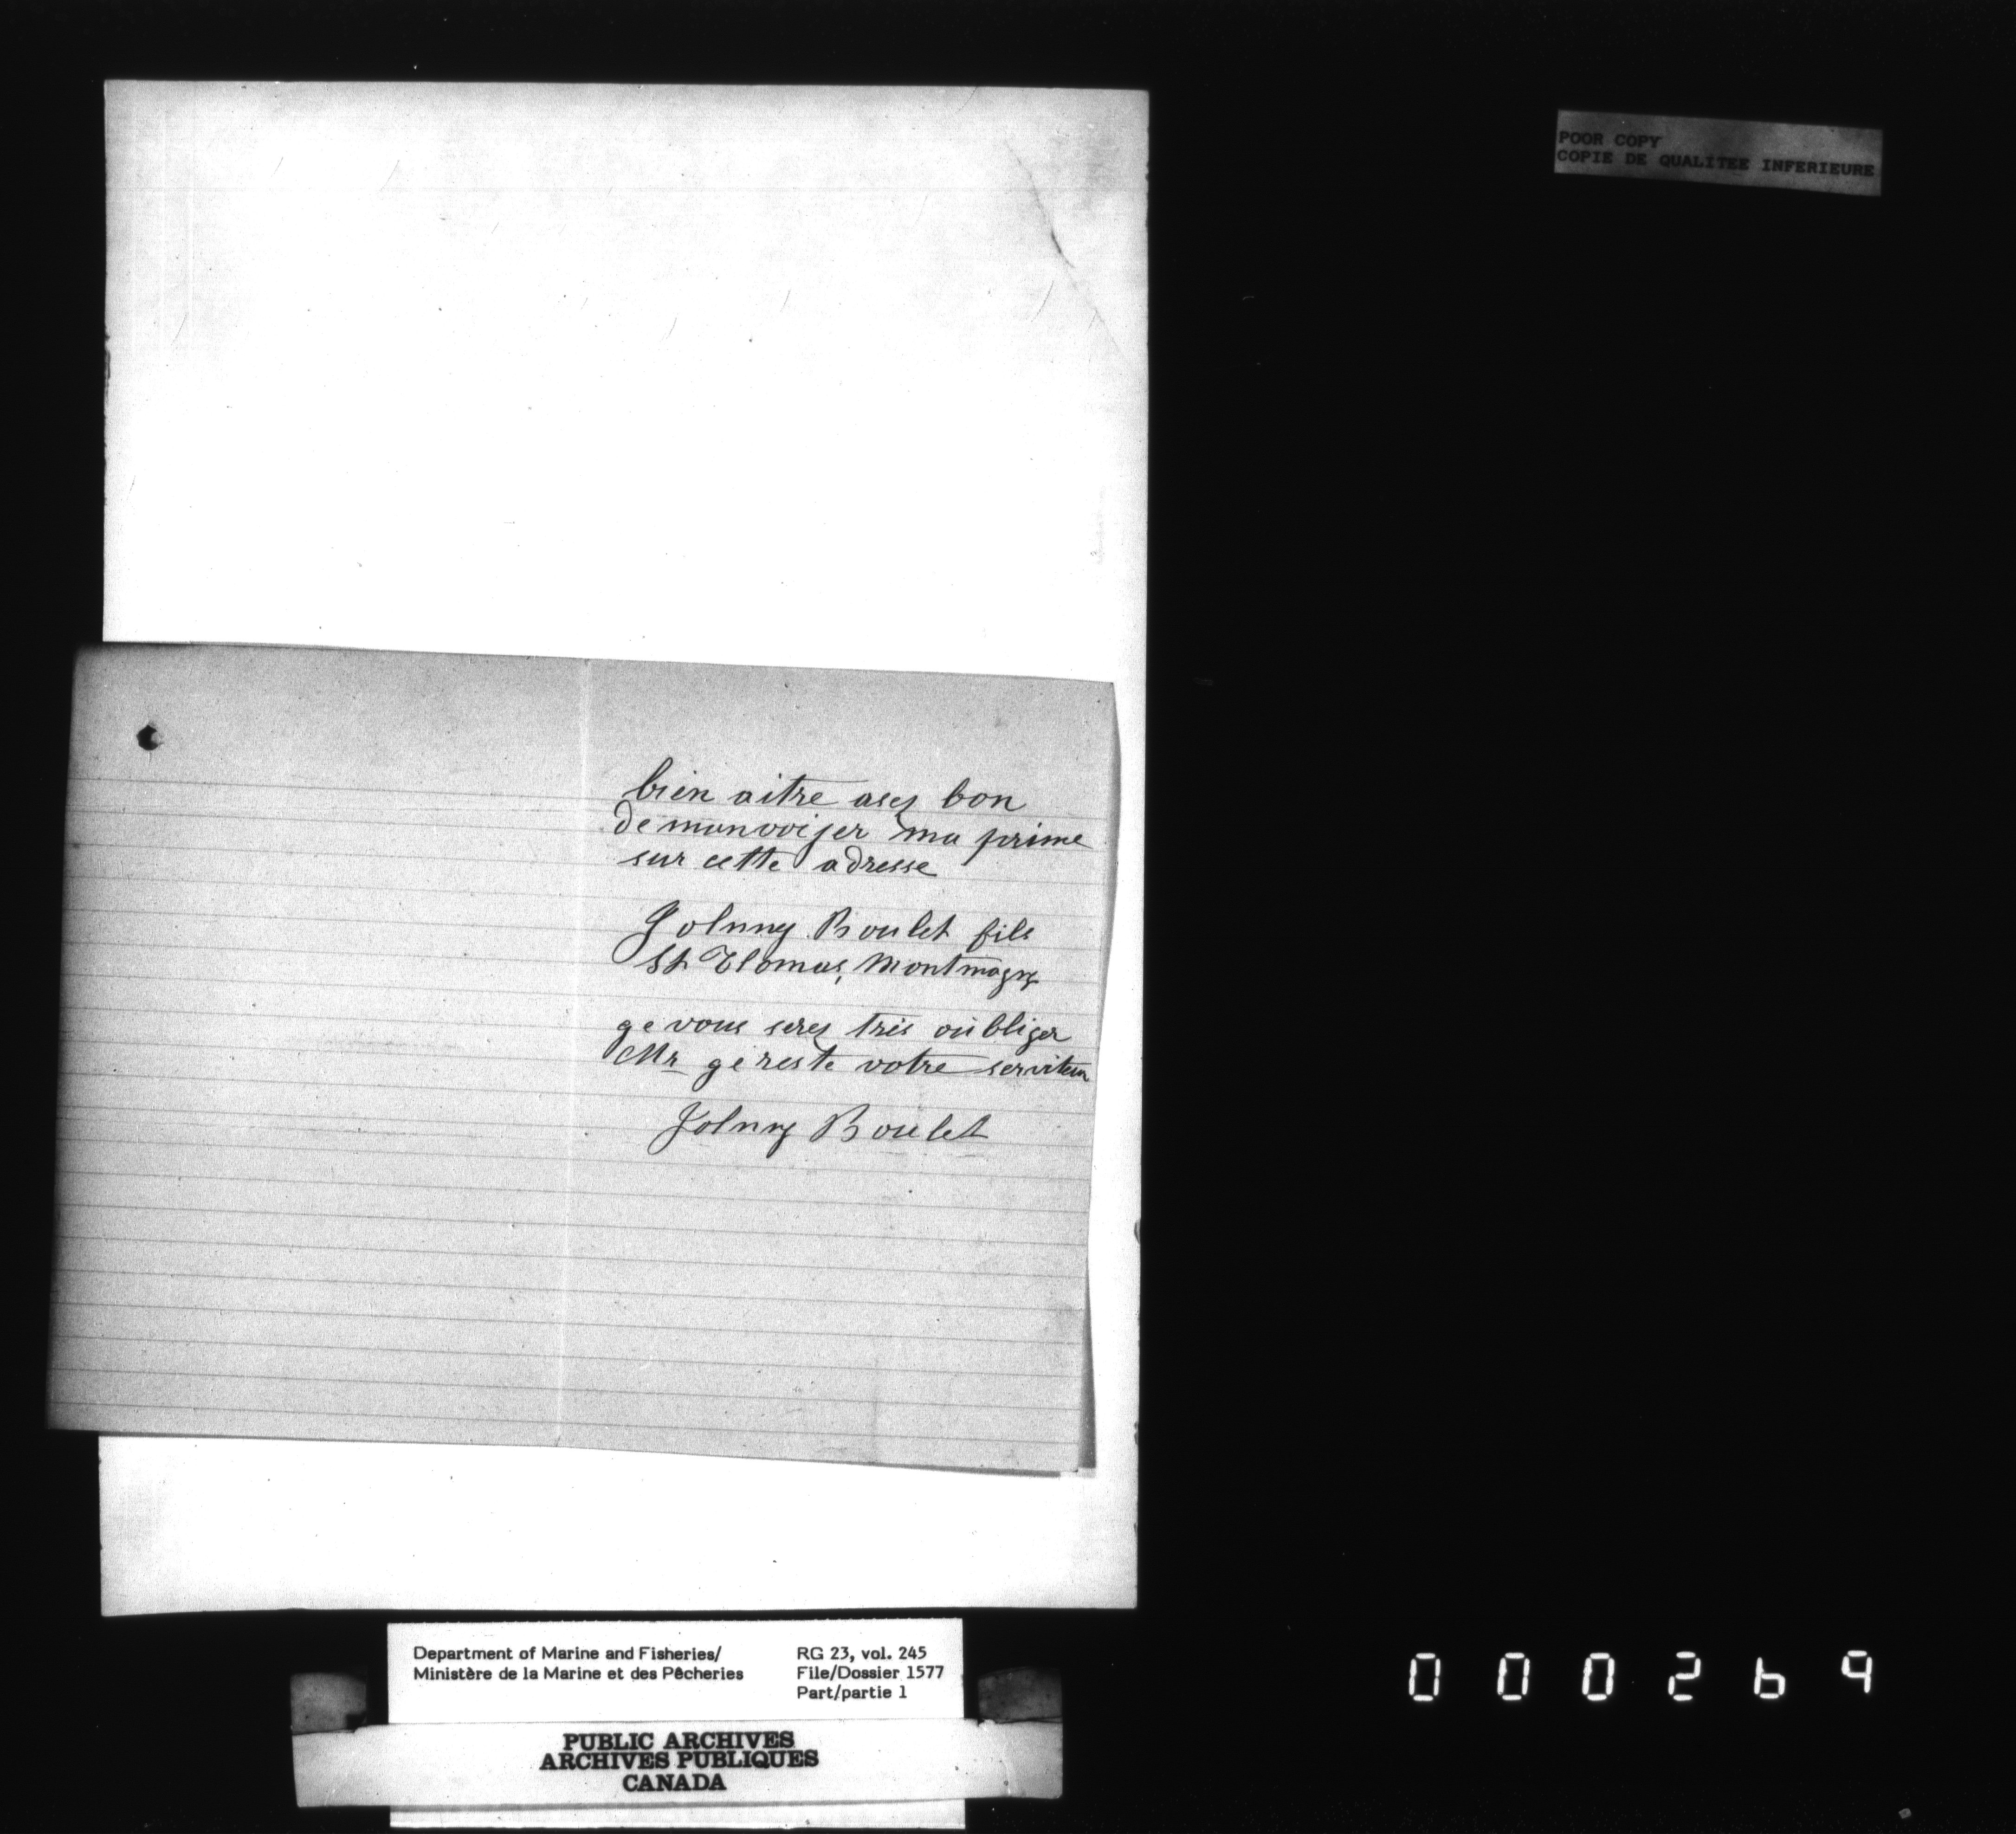 POOR COPY
COPIE DE QUALITEE INFERIEURE
bien aitre asez bon
de manvoijer ma prime
sur cette adresse
Johnny Boulet fils
St Thomas, Montmagny
ge vous serez tris oübliger
Mr ge reste votre serviteur
Johnny Boulet
Department of Marine and Fisheries/
Ministère de la Marine et des Pêcheries
RG 23, vol. 245
File/Dossier 1577
Part/partie 1
PUBLIC ARCHIVES
ARCHIVES PUBLIQUES
CANADA
000269